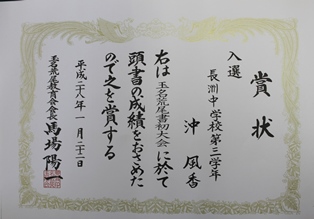 賞状
入選
長洲中学校第三学年
沖 風香
右は玉名荒尾書初大会に於て
頭書の成績をおさめた
ので之を賞する
平成二十八年 一月二十二日
玉名荒尾教育会会長 馬場陽一